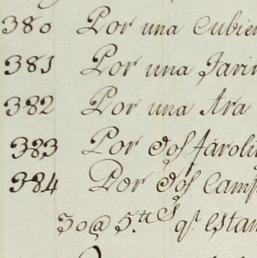 380 Por una Cubier
381 Por una Jarir
382 Por una Ara
383 Por dos faroli
384 Por dos Camp
30@ 5.tts q.e estan